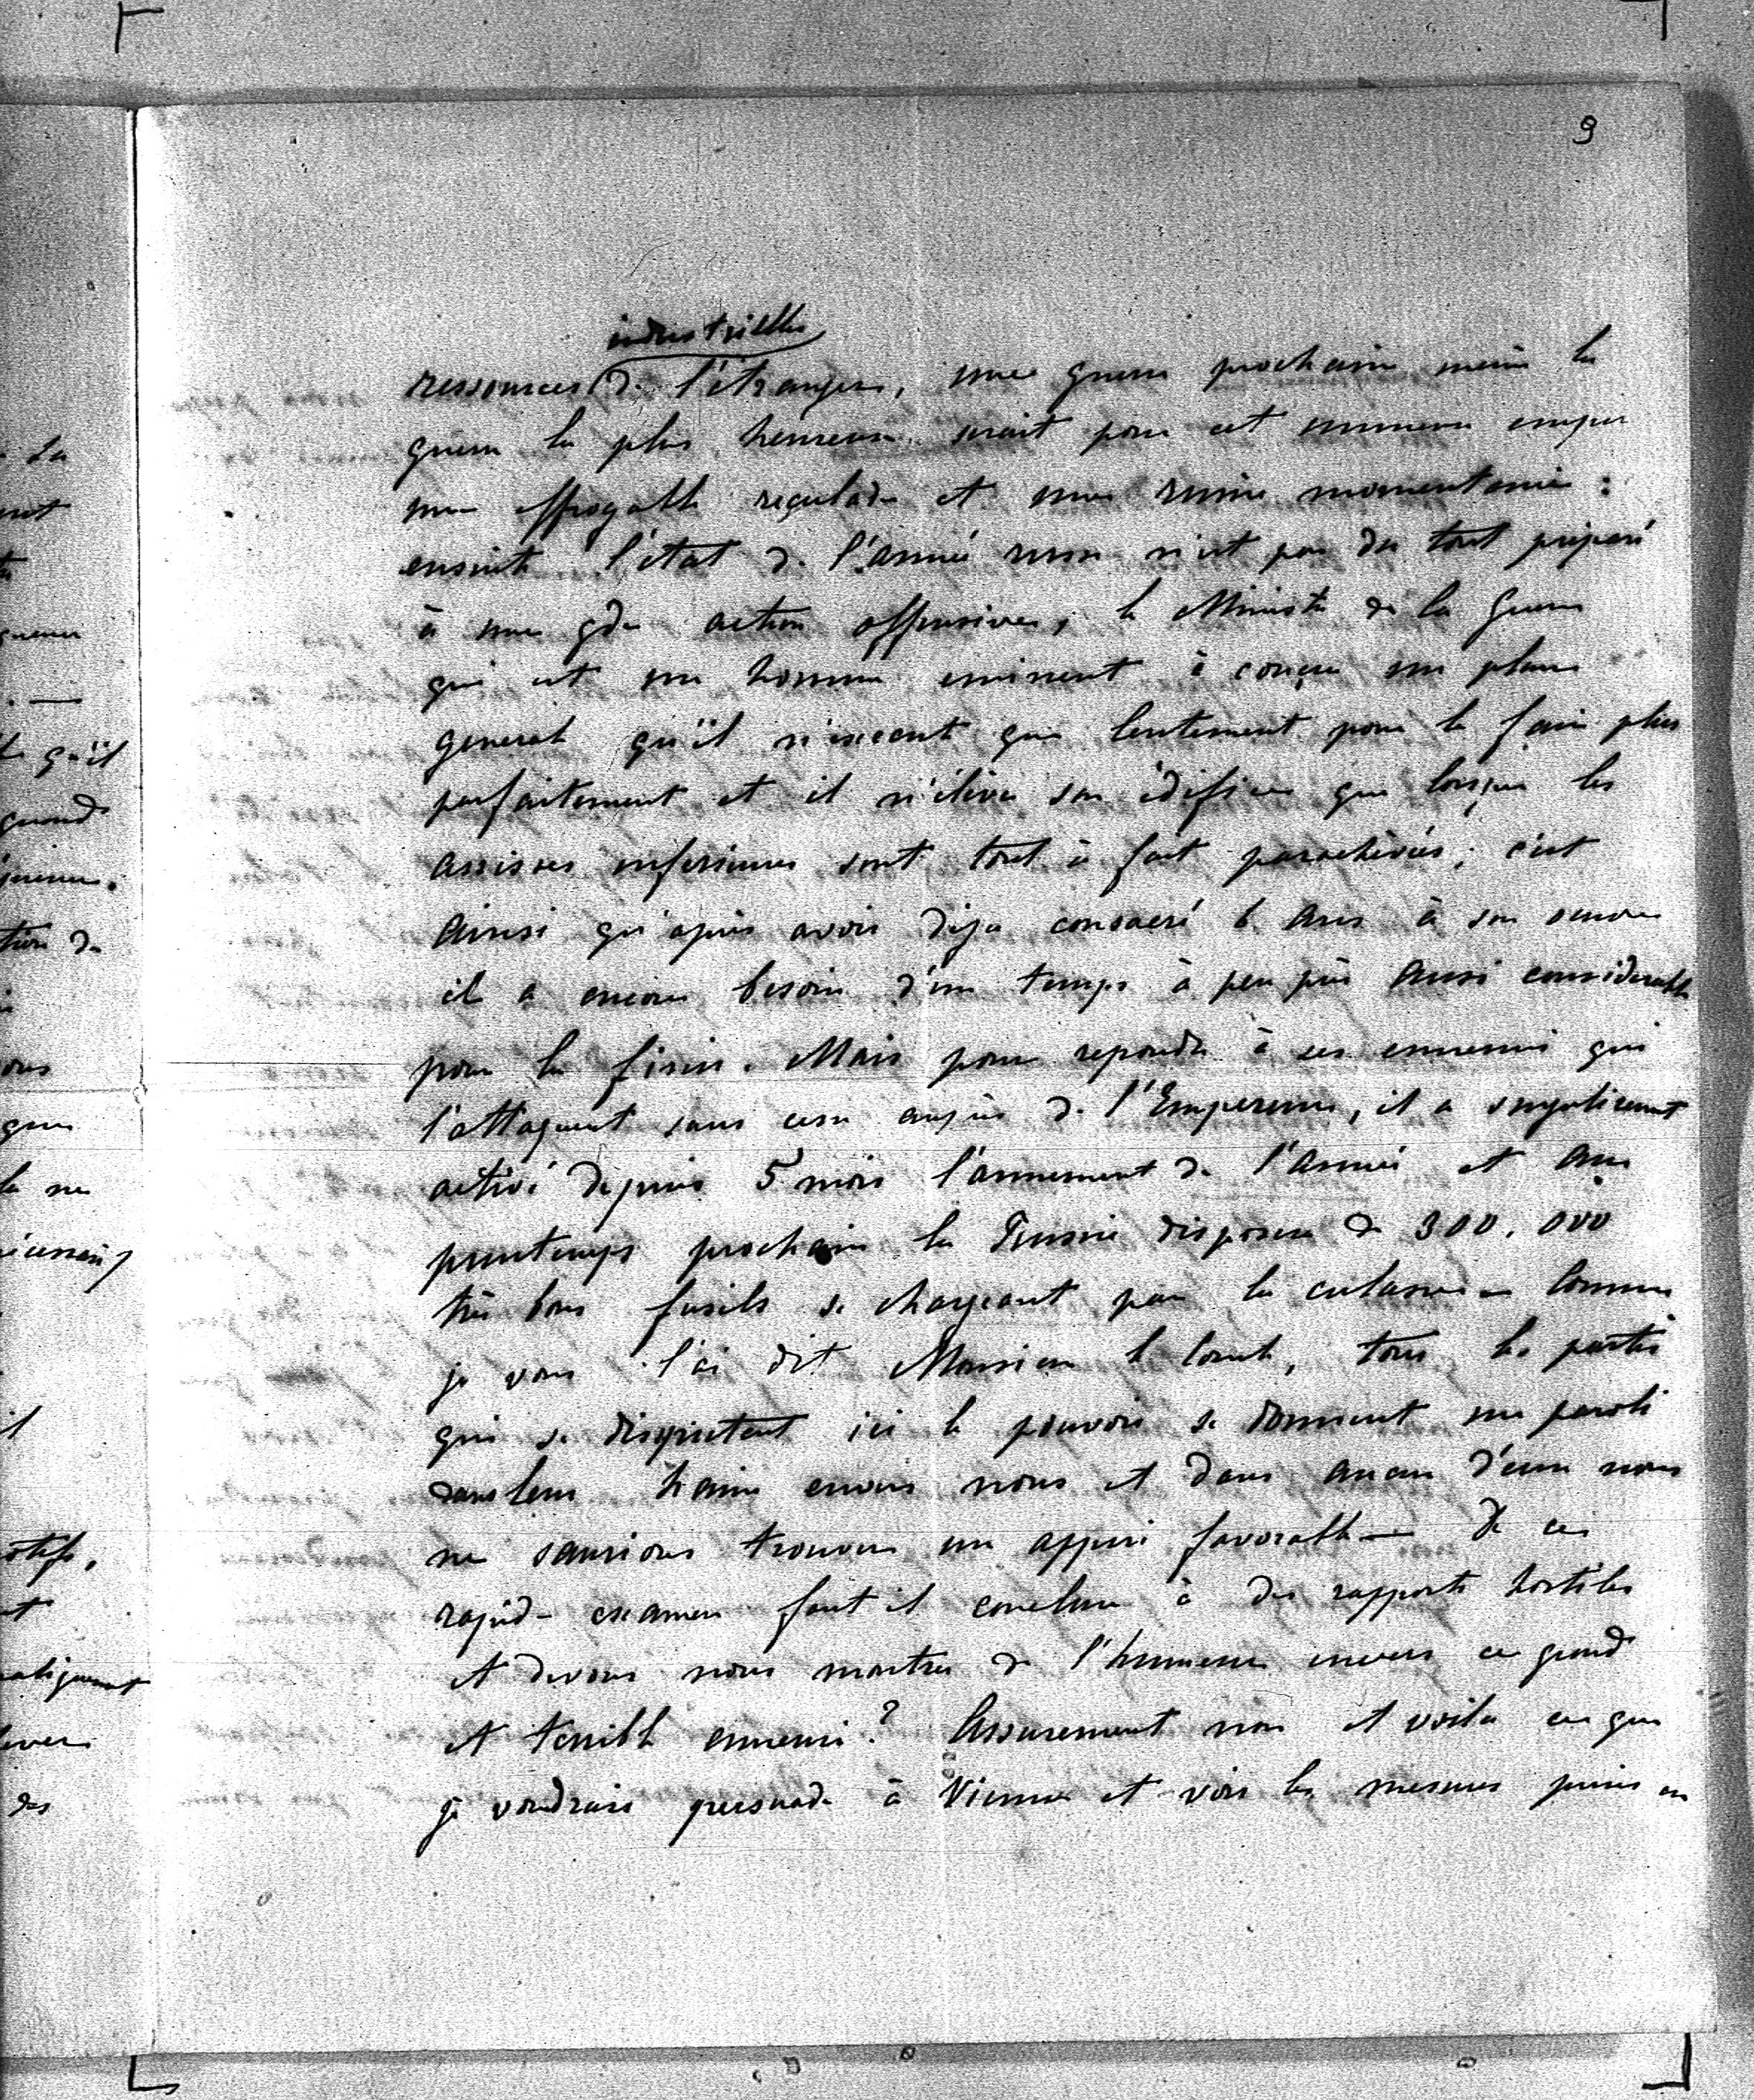 9
industrielles
ressources de l'étranger, une guerre prochaine même la
guerre la plus heureuse serait pour cet immense empire
une effroyable reculade et une ruine momentanée :
ensuite l'état de l'armée russe n'est pas du tout préparé
à une gde action offensive, le Ministre de la Guerre
qui est un homme eminent à conçu un plan
general qu'il n'execute que lentement pour le faire plus
parfaitement et il n'élève son édifice que lorsque les
assises inferieures sont tout à fait parachevées ; c'est
Ainsi qu'après avoir déja consacré 6 Ans à son oeuvre
il a encore besoin d'un temps à peu près Aussi considerable
pour la finir. Mais pour repondre à ses ennemis qui
l'attaquent sans cesse auprès de l'Empereur, il a singulierement
activé depuis 5 mois l'armement de l'Armée et Au
printemps prochain la Russie disposera de 300.000
très bons fusils se chargeant par la culasse — Comme
je vous l'ai dit Monsieur le Comte, tous les partis
qui se disputent ici le pouvoir se donnent
dans leur haine envers nous et dans aucun d'eux nous
ne saurions trouver un appui favorable — De ce
rapide examen faut il conclure à des rapports hostiles
et devons nous montrer de l'humeur envers ce grand
et terrible ennemi ? Assurement non et voila ce que
je voudrais persuader à Vienne et voir les mesures prises en